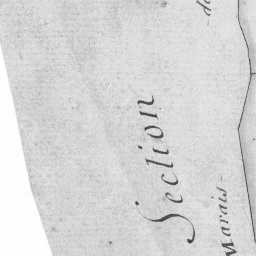 Section
Marais-